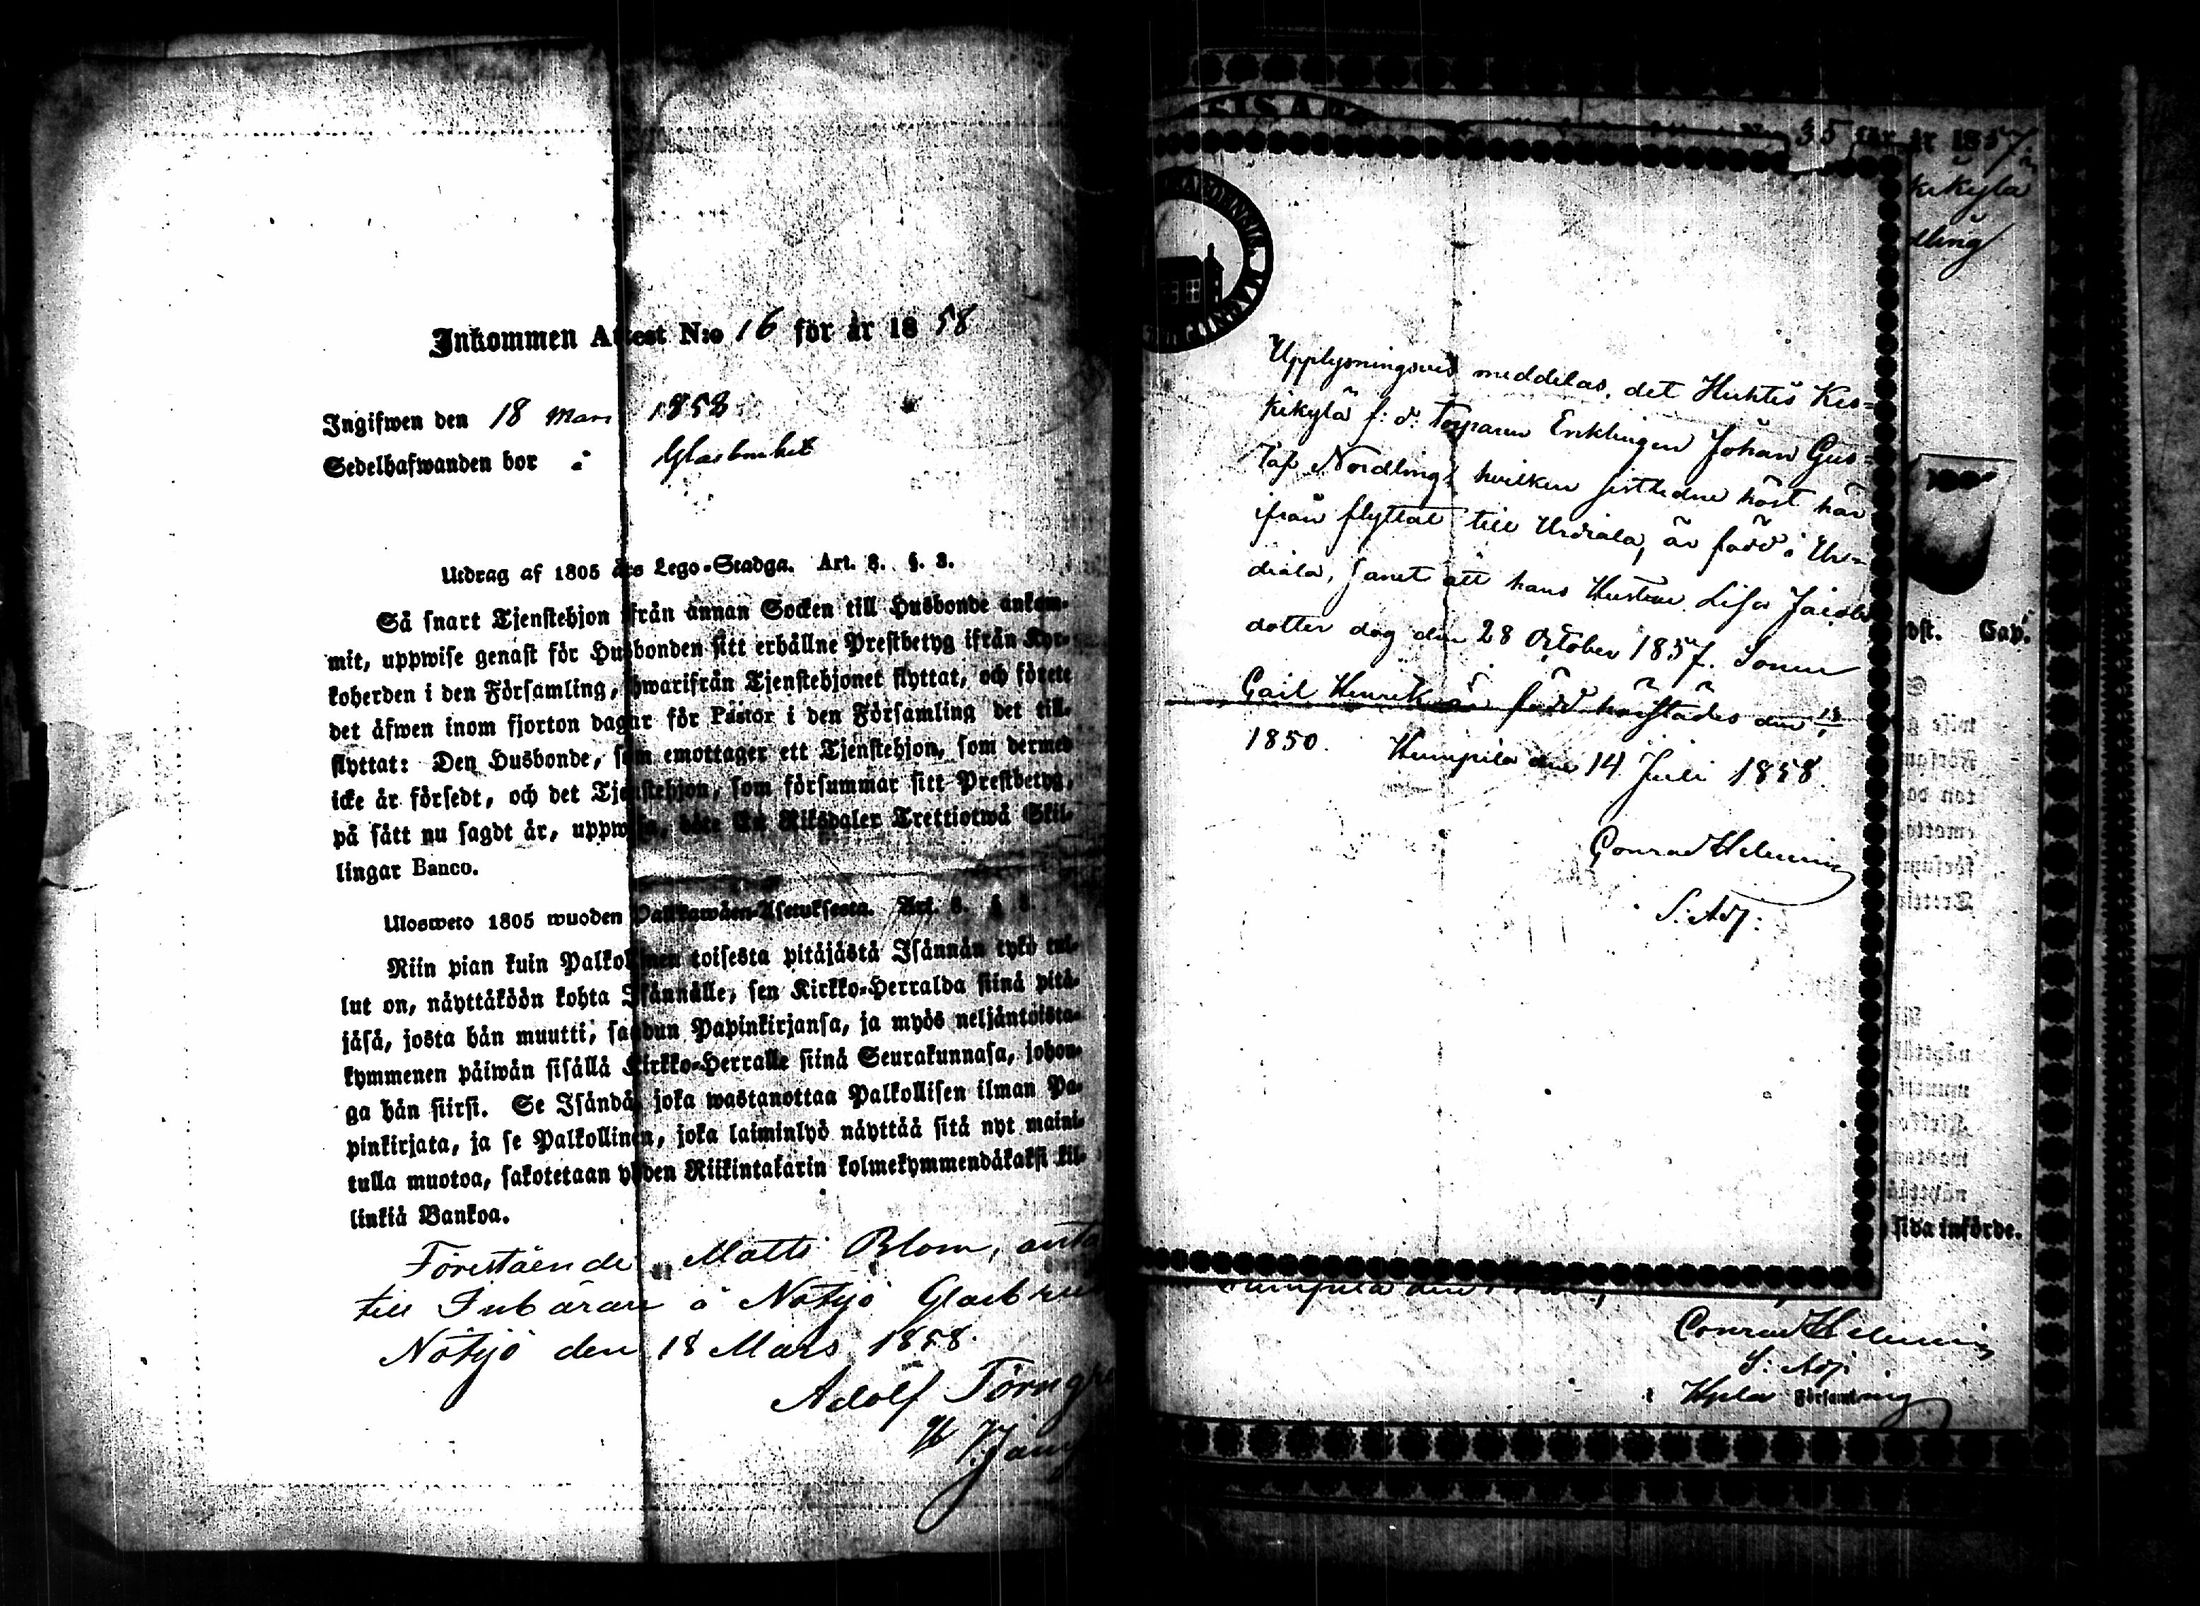 Inkommen Attest N:o 16 för år 1858
Ingifwen den 18 Mars 1858
Sedelhafwanden bor å Glasbruket
Utdrag af 1805 års Lego-Stadga. Art. 8. §. 3.
Så snart Tjenstehjon ifrån annan Socken till Husbonde ankom-
mit, uppwise genast för Husbonden sitt erhållne Prestbetyg ifrån Kyr-
koherden i den Församling, hwarifrån Tjenstehjonet flyttat, och förete
det äfwen inom fjorton dagar för Pastor i den Församling det till-
flyttat: Den Husbonde, som emottager ett Tjenstehjon, som dermed
icke är försedt, och det Tjenstehjon, som försummar sitt Prestbetyg,
på sätt nu sagdt är, uppwisa, böte En Riksdaler Trettiotwå Skil-
lingar Banco.
Ulosweto 1805 wuoden Palkkawäen-Asetuksesta. Art. 8. §
Niin pian kuin Palkollinen toisesta pitäjästä Isännän tykö tul-
lut on, näyttäköön kohta Isännälle, sen Kirkko-Herralda siinä pitä-
jäsä, josta hän muutti, saadun Papinkirjansa, ja myös neljäntoista-
kymmenen päiwän sisällä Kirkko-Herralle siinä Seurakunnasa, johon-
ga hän siirsi. Se Isändä, joka wastanottaa Palkollisen ilman Pa-
pinkirjata, ja se Palkollinen, joka laiminlyö näyttää sitä nyt maini-
tulla muotoa, sakotetaan yhden Riikintalarin kolmekymmendäkaksi kil-
linkiä Bankoa.
Förestående Matts Blom, anta
till Inbärare å Notsjö Glasbruk
Notsjö den 18 Mars 1858.
Adolf Törngre
35 för år 1857.
kikylä
dling
Upplysningsvis meddelas, det Huhtis Kes-
kikylä f. d. Torparen Enklingen Johan Gus-
taf Nordling, hvilken sistledne höst här
ifrån flyttat till Urdiala, är född i Ur-
diala, samt att hans Hustru Lisa Jacobs
dotter dog den 28 October 1857. Sonen
Carl Henrik är född härstädes den
1850. Humpila den 14 Juli 1858
Conrad Helenius
S. Adj:
dst. Cap.
sida införde.
Humpila den
Conrad Helenius
S: Adj
i Hpila Församling